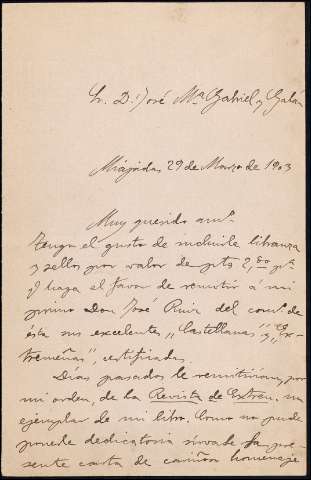 Sr. D. José Mª Gabriel y Galan
Miajadas 29 de Marzo de 1903
Muy querido am.º
Tengo el gusto de incluirle libranza
y sellos por valor de pts 2,80 pª
q haga el favor de remitir á mi
primo Don José Ruiz del com.º de
ésta sus excelentes "Castellanas" y "Ex-
tremeñas", certificadas.
Días pasados le remitirian, por
mi orden, de la Revista de Extrem. un
ejemplar de mi libro. Como no pude
ponerle dedicatoria sírvale la pre-
sente carta de cariñoso homenaje